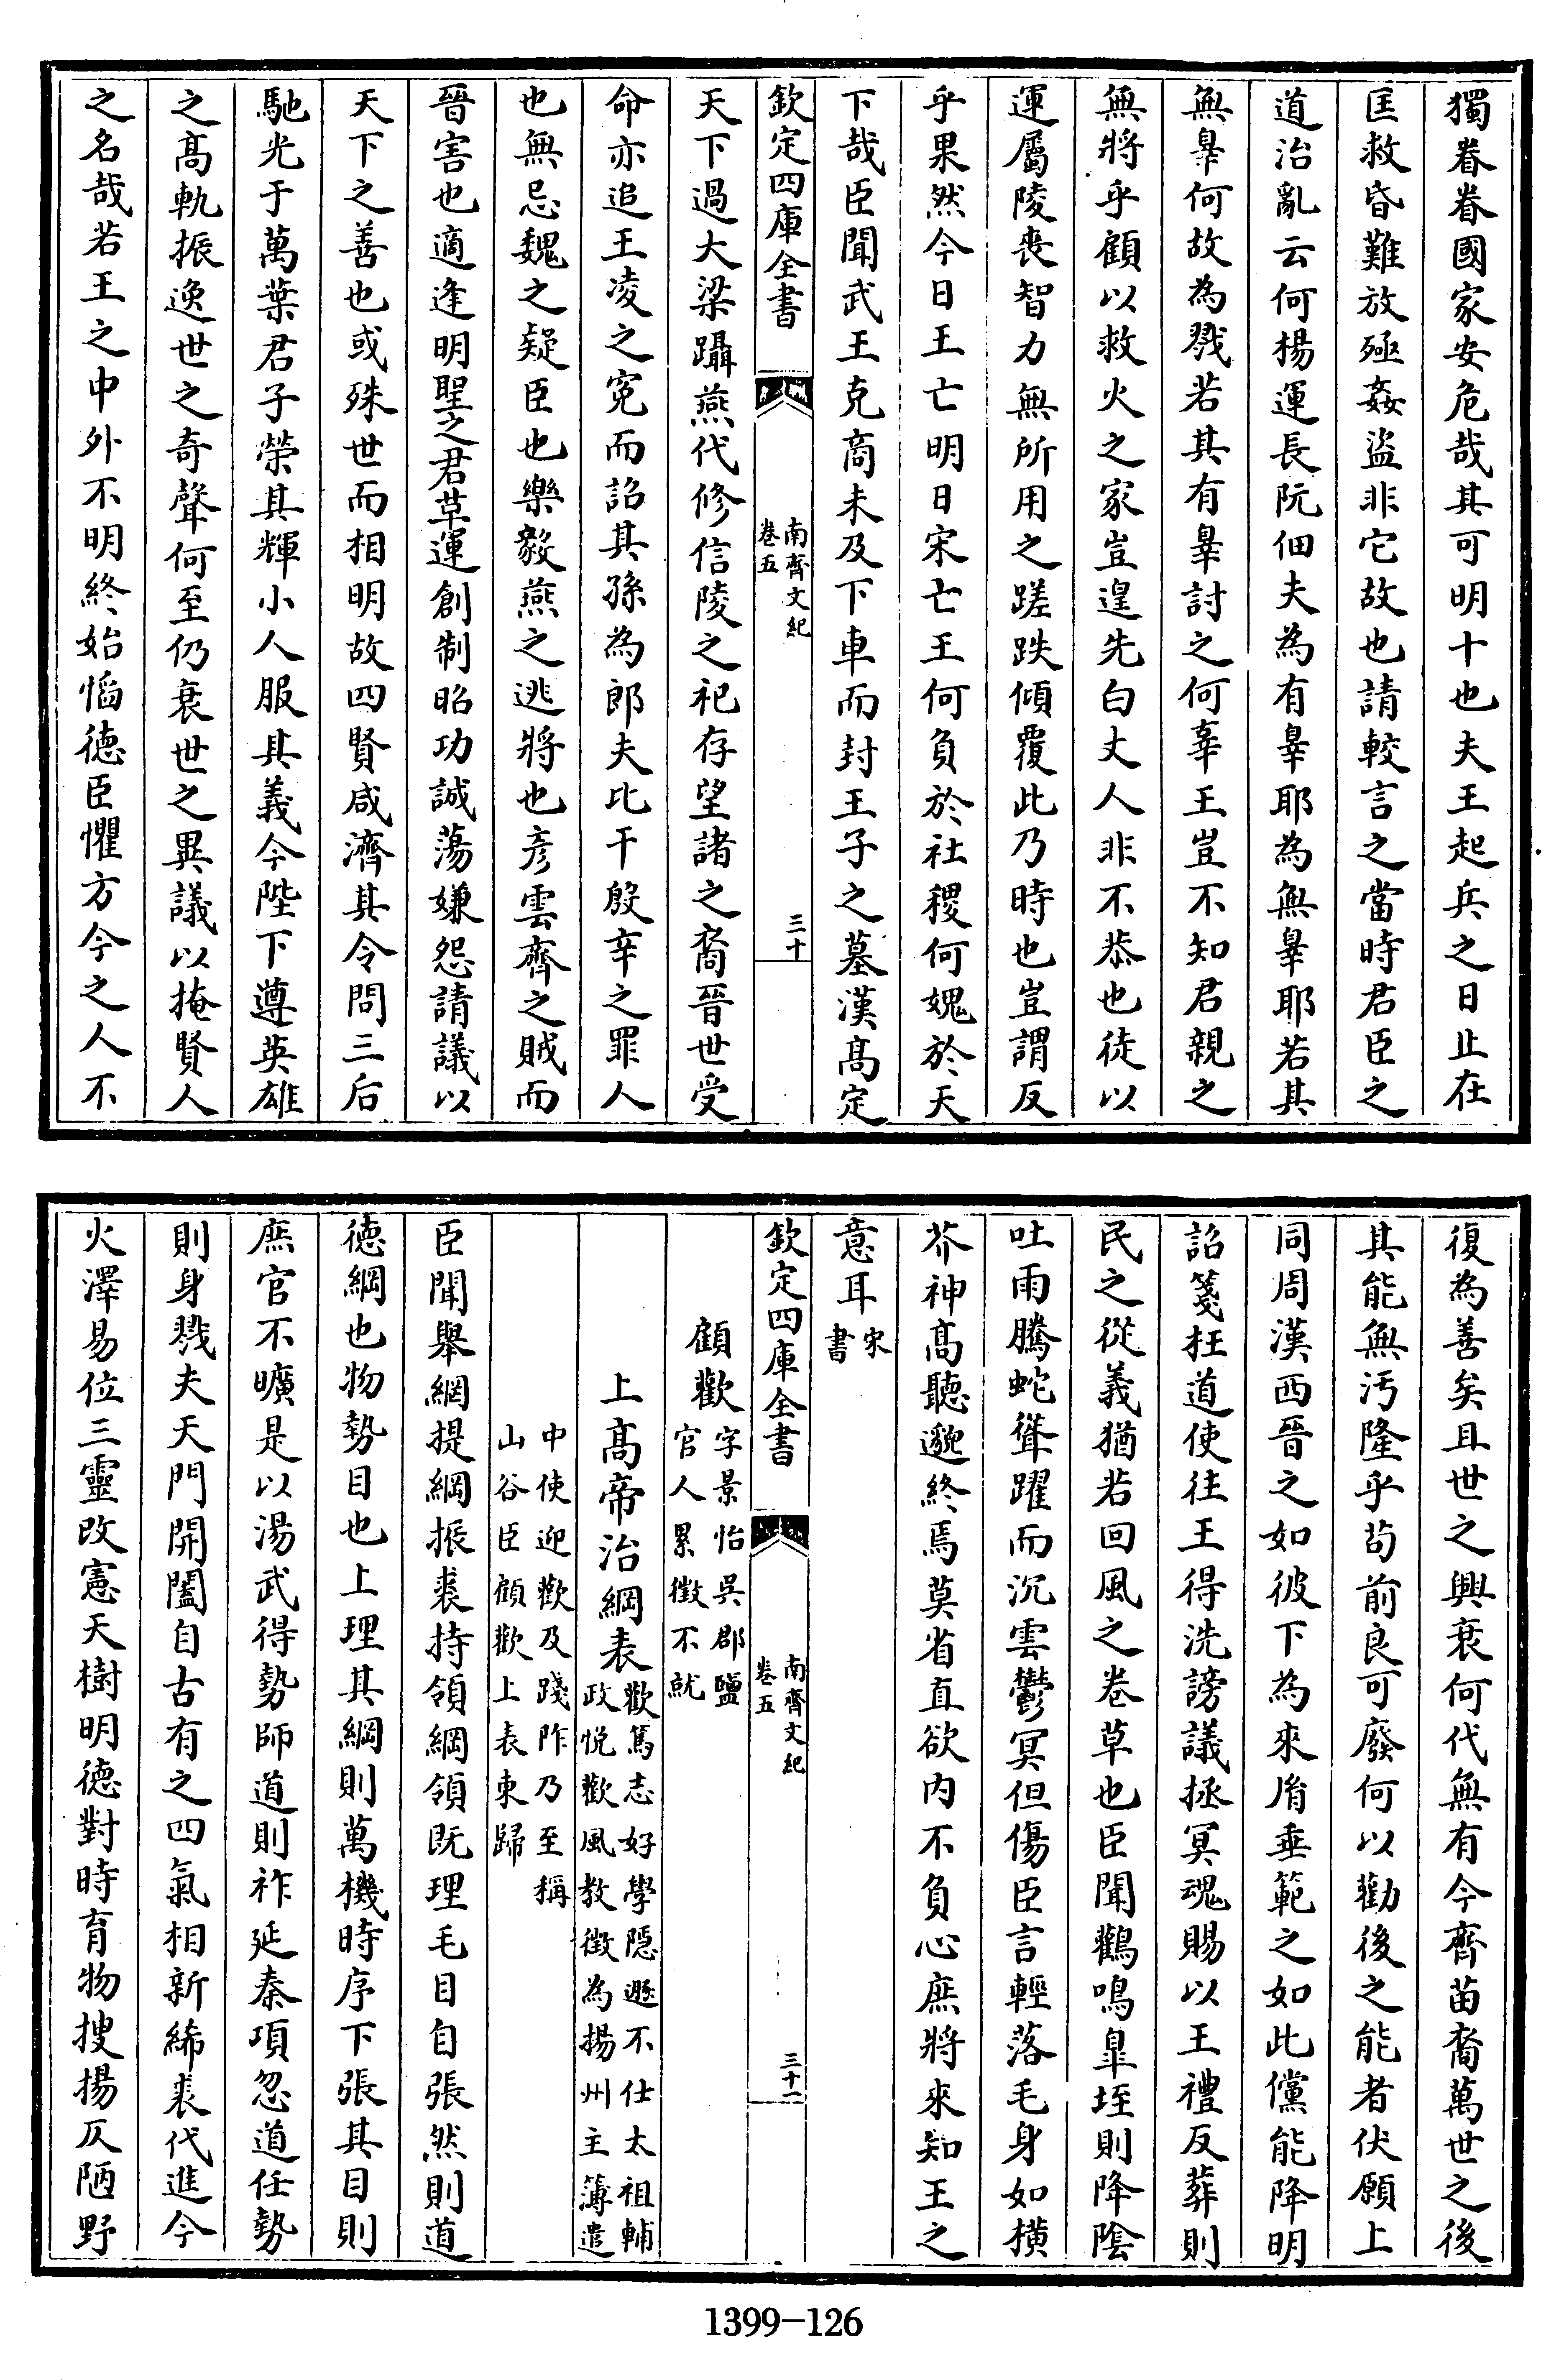 獨眷眷國家安危哉其可明十也夫王起兵之日止在
匡救昏難放殛姦盜非它故也請較言之當時君臣之
道治亂云何楊運長阮佃夫為有辠耶為無辠耶若其
無辠何故為戮若其有辠討之何辜王豈不知君親之
無將乎顧以救火之家豈遑先白丈人非不恭也徒以
運屬陵喪智力無所用之蹉跌傾覆此乃時也豈謂反
乎果然今日王亡明日宋亡王何負於社稷何媿於天
下哉臣聞武王克商未及下車而封王子之墓漢髙定
欽定四庫全書
南齊文紀
卷五
三十
天下過大梁躡燕代修信陵之祀存望諸之裔晉世受
命亦追王凌之寃而詔其孫為郎夫比干殷辛之罪人
也無忌魏之疑臣也樂毅燕之逃將也彦雲齊之賊而
晉害也適逢明聖之君革運創制昭功誠蕩嫌怨請議以
天下之善也或殊世而相明故四賢咸濟其令問三后
馳光于萬葉君子榮其輝小人服其義今陛下遵英雄
之髙軌振逸世之奇聲何至仍衰世之異議以掩賢人
之名哉若王之中外不明終始慆德臣懼方今之人不
復為善矣且世之興衰何代無有今齊苗裔萬世之後
其能無汚隆乎苟前良可廢何以勸後之能者伏願上
同周漢西晉之如彼下為來胤垂範之如此儻能降明
詔箋枉道使往王得洗謗議拯冥魂賜以王禮反葬則
民之從義猶若回風之卷草也臣聞鸛鳴臯垤則降陰
吐雨騰蛇聳躍而沉雲鬱冥但傷臣言輕落毛身如橫
芥神髙聽邈終焉莫省直欲内不負心庶將來知王之
意耳宋書
欽定四庫全書
南齊文紀
卷五
三十一
顧歡字景怡吳郡鹽官人累徵不就
上髙帝治綱表歡篤志好學隱遯不仕太祖輔政悅歡風教徵為揚州主簿遣
中使迎歡及踐阼乃至稱山谷臣顧歡上表東歸
臣聞舉網提綱振裘持領綱領既理毛目自張然則道
德綱也物勢目也上理其綱則萬機時序下張其目則
庶官不曠是以湯武得勢師道則祚延秦項忽道任勢
則身戮夫天門開闔自古有之四氣相新絺裘代進今
火澤易位三靈改憲天樹明德對時育物搜揚仄陋野
1399-126